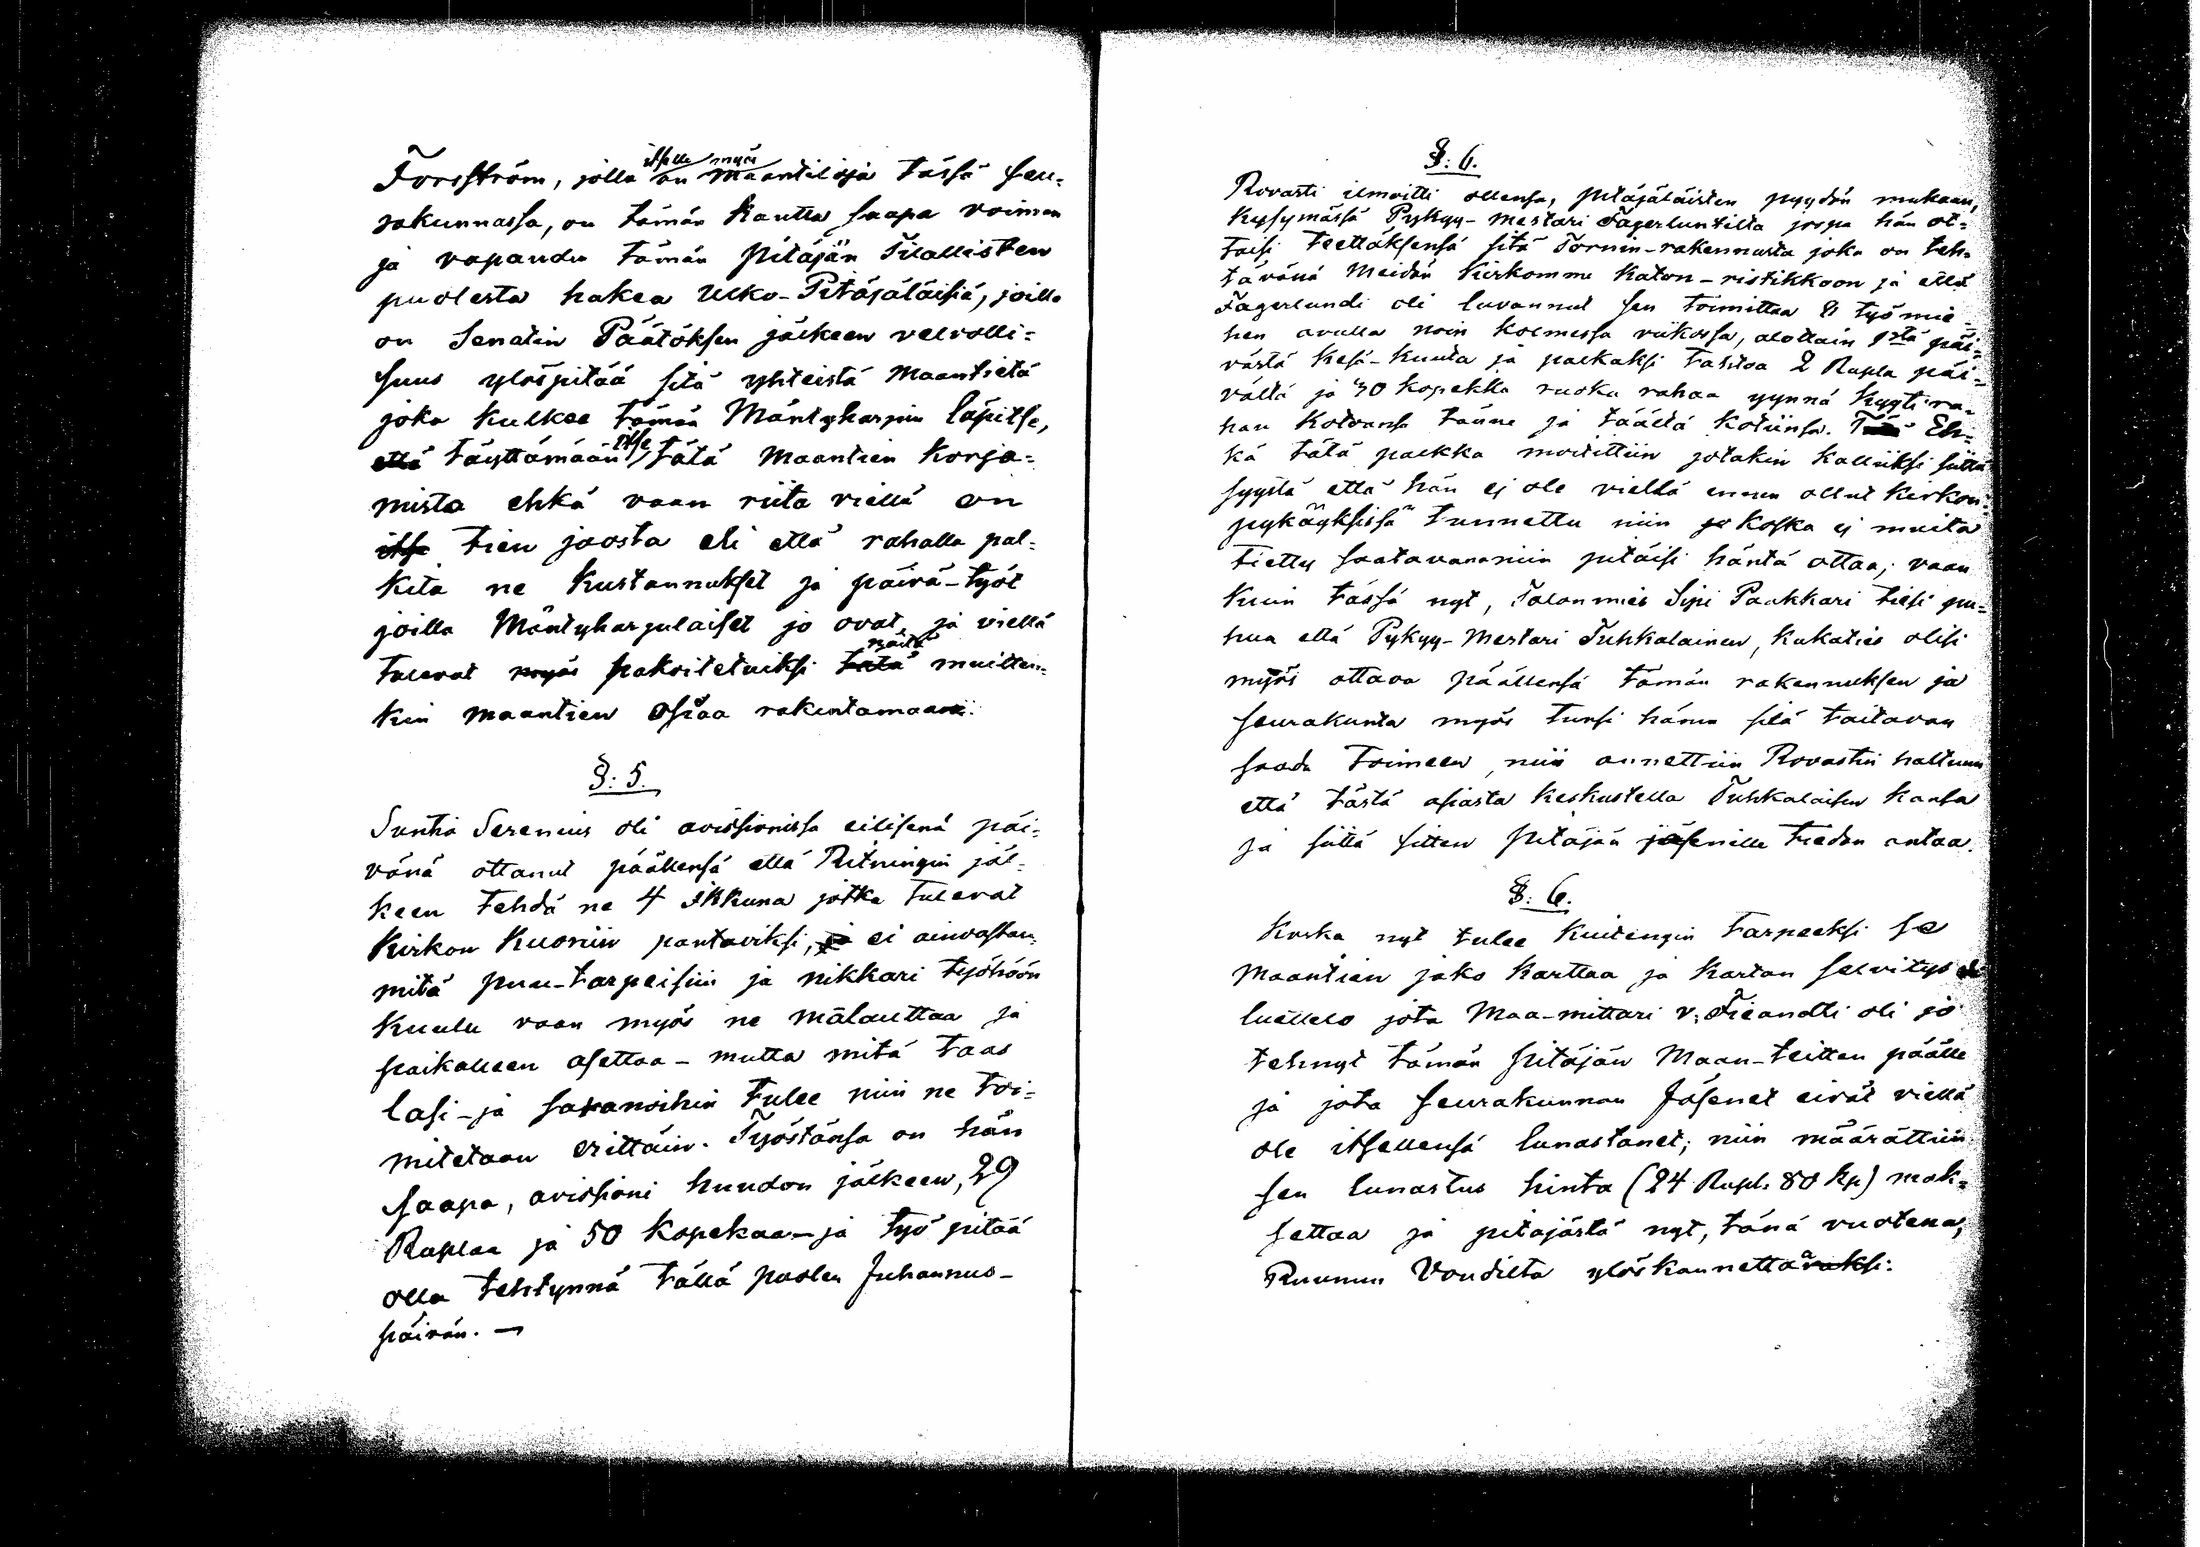 Forsström, jolla itselle on myös maantiloja tässä seu-
rakunnassa, on tämän kautta saapa voiman
ja vapauden tämän Pitäjän Tilallisten
puolesta hakea Ulko-Pitäjäläisiä, joilla
on Senatin Päätöksen jälkeen velvolli-
suus ylöspitää sitä yhteistä Maantietä
joka kulkee tämän Mäntyharjun läpitse,
että täyttämään itse tätä Maantien korja-
mista ehkä vaan riita viellä on
itse tien joosta eli että rahalla pal-
kita ne kustannukset ja päivä-työt
joilla Mäntyharjulaiset jo ovat, ja viellä
tulevat myös pakoitetuiksi tätä näitä muitten-
kin maantien osiaa rakentamaan.
§: 5.
Suntio Serenius oli avissionissa eilisenä päi-
vänä ottanut päällensä että Ritningin jäl-
keen tehdä ne 4 ikkuna jotka tulevat
Kirkon Kuoriin pantaviksi, ja ei ainoastan
mitä puu-tarpeisiin ja nikkari työhöön
kuulu vaan myös ne mälauttaa ja
paikalleen asettaa - mutta mitä taas
lasi- ja saranoihin tulee niin ne toi-
mitetaan erittäin. Työstänsä on hän
saapa, avissioni huudon jälkeen, 29
Ruplaa ja 50 Kopekaa - ja työ pitää
olla tehtynnä tällä puolen Juhannus-
päivän. -
§: 6.
Rovasti ilmoitti ollensa, pitäjäläisten pyydön mukaan,
kysymässä Pykyy-Mestari Fagerluntilta jospa hän ot-
taisi teettäksensä sitä Tornin-rakennusta joka on teh-
tävänä Meidän Kirkomme Katon-ristikkoon ja että
Fagerlundi oli luvannut sen toimittaa 8 työmie-
hen avulla noin kolmessa viikossa, alottain 1stä päi-
västä Kesä-Kuuta ja palkaksi tahtoa 2 Rupla päi-
vältä ja 30 kopekka ruoka rahaa yynnä kyyti ra-
han Kotoansa tänne ja täältä kotiinsa. Eh-
kä tätä palkka moitittiin jotakin kalliiksi siittä
syystä että hän ej ole viellä ennen ollut kirkon-
pykäyksissä tunnettu niin ja koska ej muita
tietty saatavana niin pitäisi häntä ottaa; vaan
kuin tässä nyt, Talonmies Sipi Paakkari tiesi pu-
hua että Pykyy-Mestari Tuhkalainen, kukaties olisi
myös ottava päällensä tämän rakennuksen ja
seurakunta myös tunsi hänen sitä taitavan
saada toimeen, niin annettiin Rovastin haltuun
että tästä asiasta keskustella Tuhkalaisen kansa
ja siitä sitten Pitäjän jäsenille tiedon antaa.
§: 6.
Koska nyt tulee kuitengin tarpeeksi se
Maantien jako karttaa ja kartan selvitys eli
luettelo jota Maa-mittari v. Fieandti oli jo
tehnyt tämän Pitäjän Maan-teitten päälle
ja jota seurakunnan Jäsenet eivät viellä
ole itsellensä lunastanet; niin määrättiin
sen lunastus hinta (24 Rupl. 80 kp) mak-
settaa ja pitäjästä nyt, tänä vuotena,
Ruunun Voudilta ylöskannettavaksi.